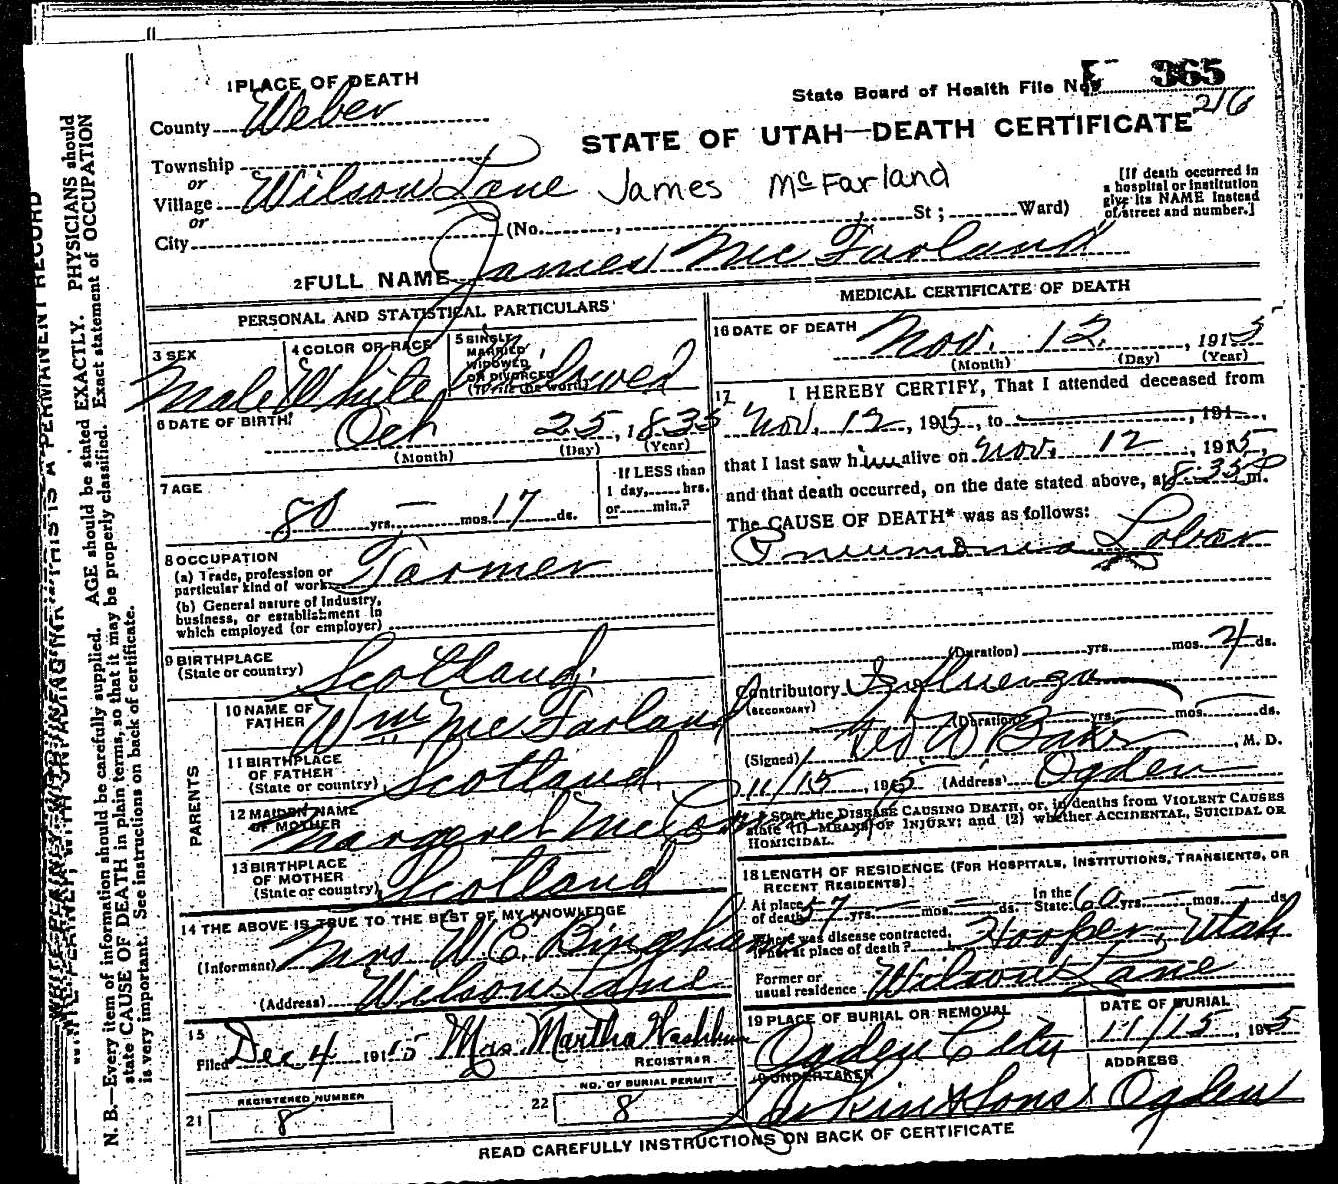 1 PLACE OF DEATH
State Board of Health File No. 365
County Weber
216
STATE OF UTAH—DEATH CERTIFICATE
Township
or
Village Wilson Lane
James McFarland
or
City
(No. , St; Ward)
[If death occurred in
a hospital or institution
give its NAME instead
of street and number.]
2 FULL NAME James McFarland
PERSONAL AND STATISTICAL PARTICULARS
3 SEX
Male
4 COLOR OR RACE
White
5 SINGLE
MARRIED
WIDOWED
OR DIVORCED
(Write the word)
Widowed
6 DATE OF BIRTH
Oct 25, 1835
(Month) (Day) (Year)
7 AGE
80 yrs. — mos. 17 ds.
If LESS than
1 day, hrs.
or min.?
8 OCCUPATION
(a) Trade, profession or
particular kind of work Farmer
(b) General nature of industry,
business, or establishment in
which employed (or employer)
9 BIRTHPLACE
(State or country) Scotland.
PARENTS
10 NAME OF
FATHER Wm McFarland
11 BIRTHPLACE
OF FATHER
(State or country) Scotland
12 MAIDEN NAME
OF MOTHER
Margaret
13 BIRTHPLACE
OF MOTHER
(State or country) Scotland
14 THE ABOVE IS TRUE TO THE BEST OF MY KNOWLEDGE
(Informant) Mrs W.E. Bingham
(Address) Wilson Lane
15
Filed Dec 4 1915 Mrs. Martha Washburn
REGISTRAR
21 REGISTERED NUMBER
8
22 NO. OF BURIAL PERMIT
8
MEDICAL CERTIFICATE OF DEATH
16 DATE OF DEATH Nov. 12, 1915
(Month) (Day) (Year)
17 I HEREBY CERTIFY, That I attended deceased from
Nov. 12, 1915, to , 191 ,
that I last saw him alive on Nov. 12, 1915,
and that death occurred, on the date stated above, at 8:35 P m.
The CAUSE OF DEATH* was as follows:
Pneumonia Lobar
(Duration) yrs. mos. 4 ds.
Contributory Influenza
(SECONDARY)
(Duration) yrs. mos. ds.
(Signed) , M. D.
11/15, 1915 (Address) Ogden
State the DISEASE CAUSING DEATH, or, in deaths from VIOLENT CAUSES
state (1) MEANS OF INJURY; and (2) whether ACCIDENTAL, SUICIDAL OR
HOMICIDAL.
18 LENGTH OF RESIDENCE (FOR HOSPITALS, INSTITUTIONS, TRANSIENTS, OR
RECENT RESIDENTS).
At place
of death 57 yrs. — mos. — ds.
In the
State 60 yrs. — mos. — ds.
Where was disease contracted,
if not at place of death? Hooper, Utah
Former or
usual residence Wilson Lane
19 PLACE OF BURIAL OR REMOVAL
Ogden City
DATE OF BURIAL
11/15, 1915
UNDERTAKER
Larkin & Sons
ADDRESS
Ogden
READ CAREFULLY INSTRUCTIONS ON BACK OF CERTIFICATE
N. B.—Every item of information should be carefully supplied. AGE should be stated EXACTLY. PHYSICIANS should
state CAUSE OF DEATH in plain terms, so that it may be properly classified. Exact statement of OCCUPATION
is very important. See instructions on back of certificate.
THIS IS A PERMANENT RECORD